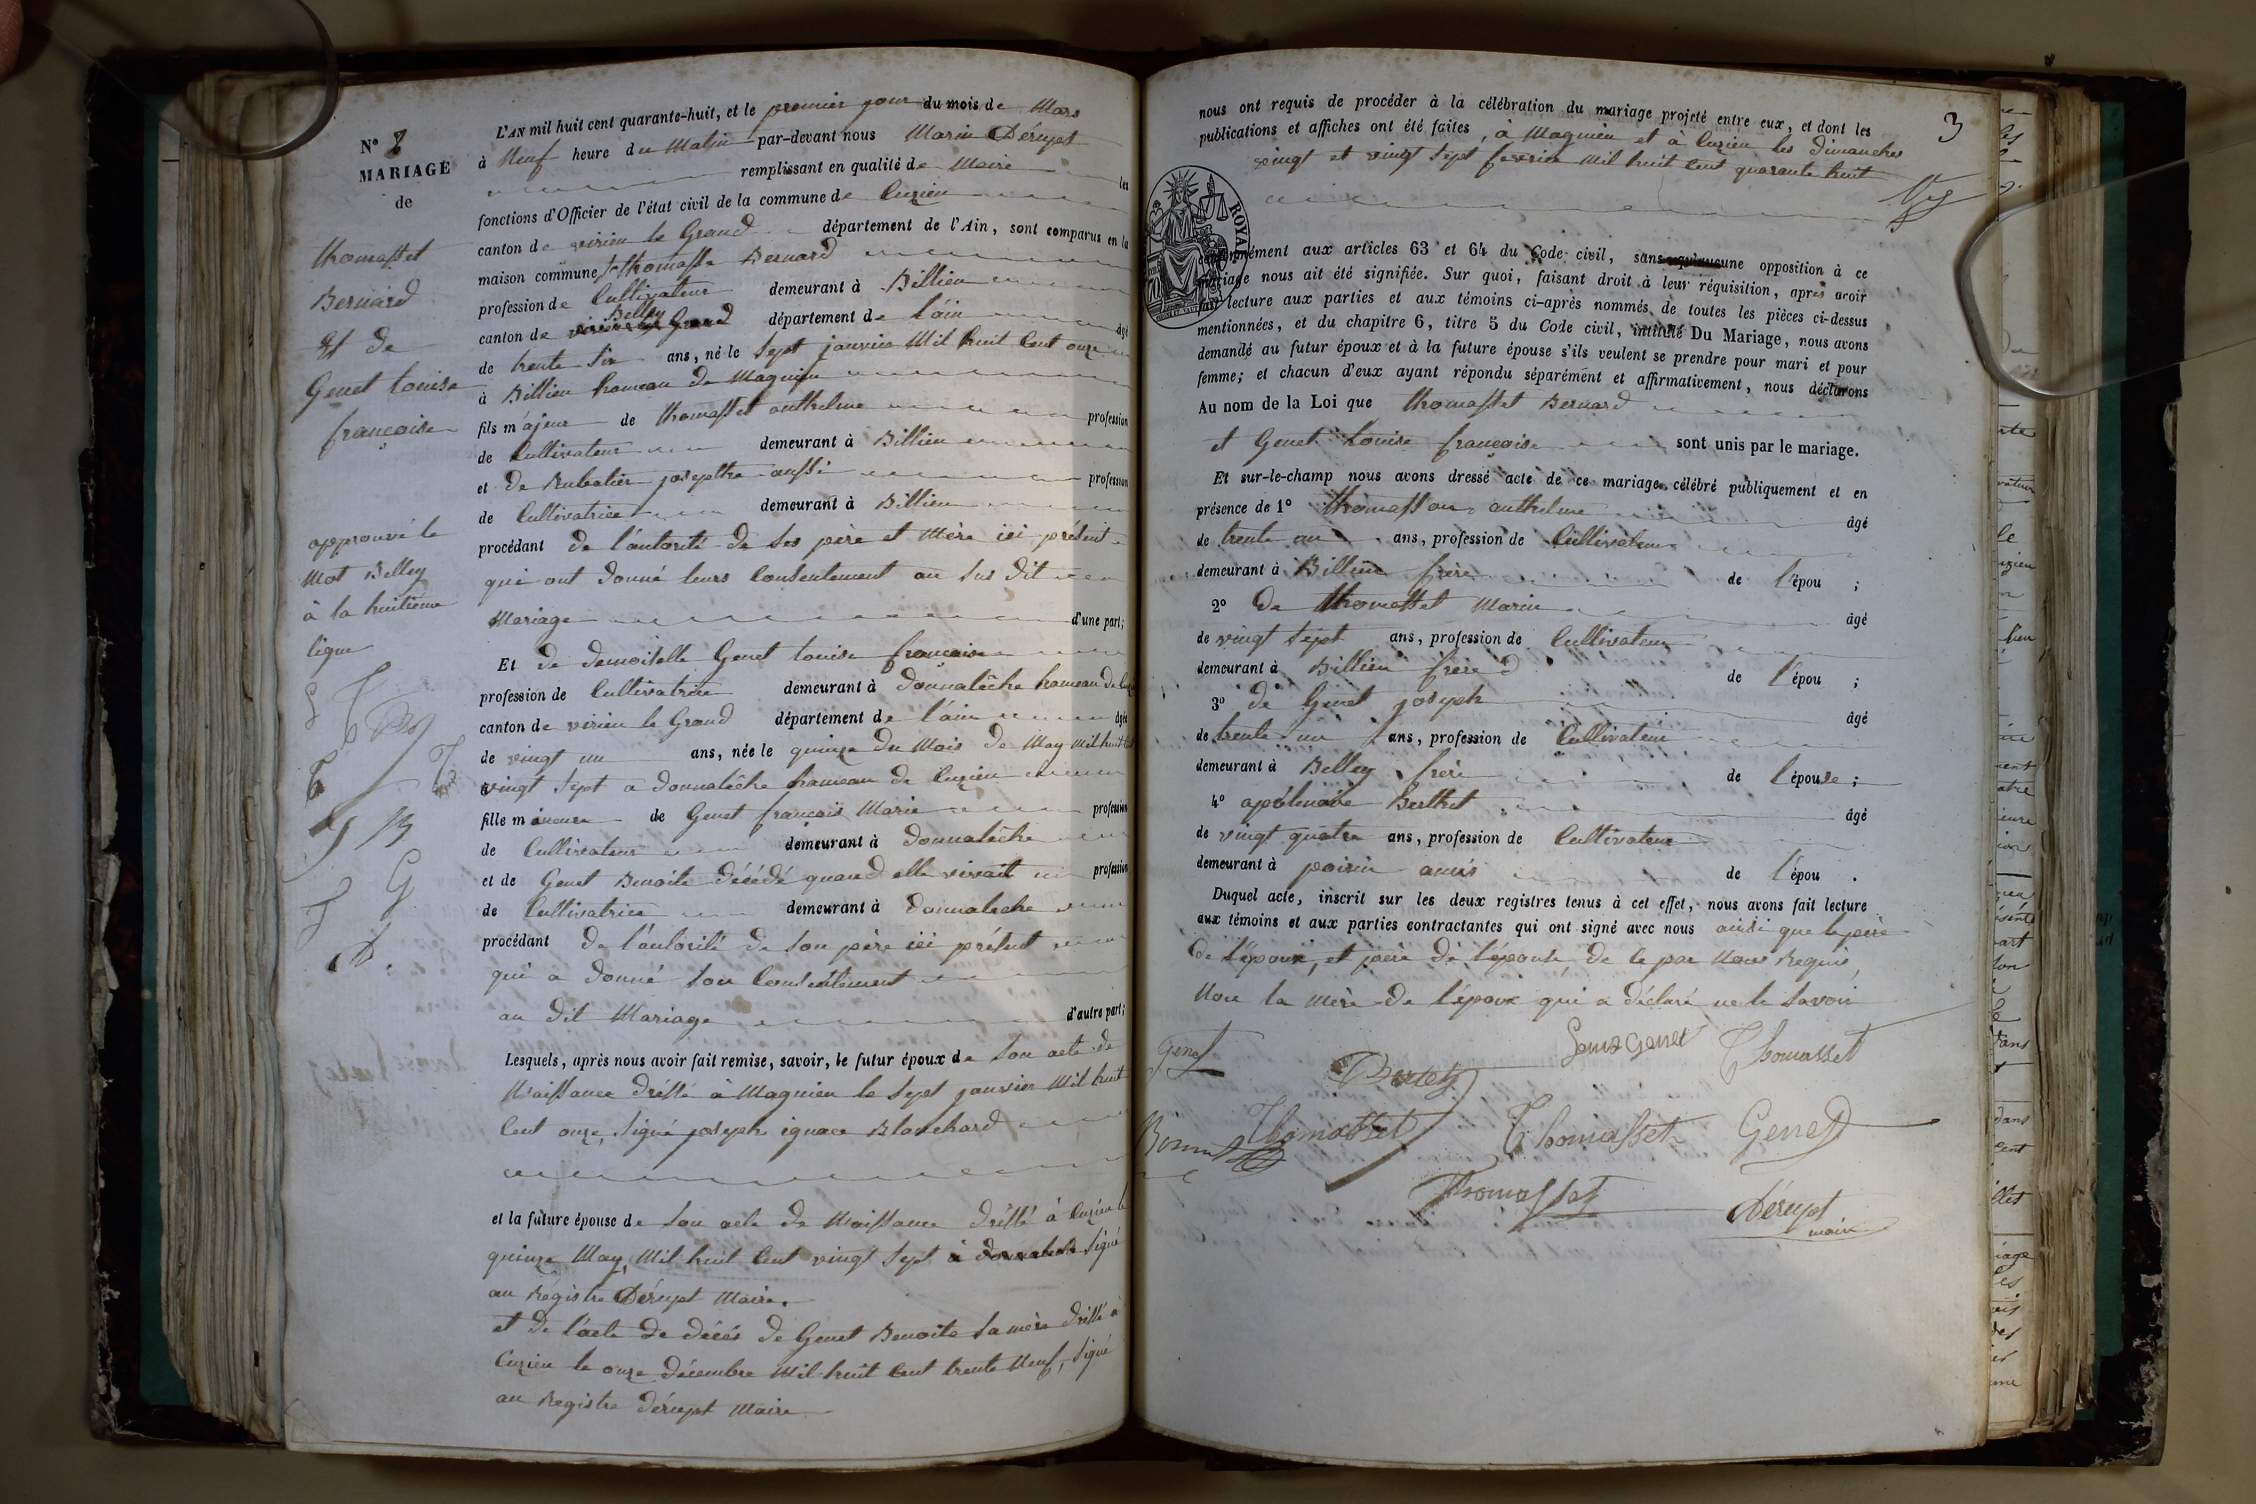 N° 2
MARIAGE
de
thomasset
Bernard
Et de
Genet Louise
françoise
approuvé le
Mot Belley
à la huitieme
ligne
L'AN mil huit cent quarante-huit, et le premier jour du mois de Mars
à Neuf heure du Matin par-devant nous Marin Déruyet
remplissant en qualité de Maire les
fonctions d'Officier de l'état civil de la commune de Cuzieu
canton de virieu le Grand département de l'Ain, sont comparus en la
maison commune thomasse Bernard
profession de Cultivateur demeurant à Billieu
Belley
canton de virieu le Grand département de l'ain âgé
de trente six ans, né le Sept janvier Mil huit Cent onze
à Billieu hameau de Magnieu
fils majeur de thomasset anthelme profession
de Cultivateur demeurant à Billieu
et de Rubatier josephte aussi profession
de Cultivatrice demeurant à Billieu
procédant de l'autorité de Ses père et Mère ici présent
qui ont donné leurs Consentement au Sus dit
Mariage d'une part;
Et de demoiselle Genet Louise françoise
profession de Cultivatrice demeurant à donnalèche hameau de
canton de virieu le Grand département de l'ain âgée
de vingt un ans, née le quinze du Mois de May Mil huit
vingt Sept a donnalèche hameau de Cuzieu
fille mineure de Genet françois Marie profession
de Cultivateur demeurant à donnalèche
et de Genet Benoite décédé quand elle vivait profession
de Cultivatrice demeurant à donnalèche
procédant de l'autorité de Son père ici présent
qui a donné Son Consentement
au dit Mariage d'autre part;
Lesquels, après nous avoir fait remise, savoir, le futur époux de Son acte de
Naissance dréssé à Magnieu le Sept janvier Mil huit
Cent onze, Signé joseph ignace Blanchard
et la future épouse de Son acte de Naissance dréssé à Cuzieu le
quinze May Mil huit Cent vingt Sept à donnalèche Signé
au Régistre Déruyet Maire.
et de l'acte de décés de Genet Benoite Sa mère dréssé à
Cuzieu le onze décembre Mil huit Cent trente Neuf, Signé
au Registre déruyet Maire
3
nous ont requis de procéder à la célébration du mariage projeté entre eux, et dont les
publications et affiches ont été faites, à Magnieu et à Cuzieu les dimanches
vingt et vingt Sept fevrier Mil huit Cent quarante huit
ROYAL
conformément aux articles 63 et 64 du Code civil, sans qu'aucune opposition à ce
mariage nous ait été signifiée. Sur quoi, faisant droit à leur réquisition, après avoir
fait lecture aux parties et aux témoins ci-après nommés de toutes les pièces ci-dessus
mentionnées, et du chapitre 6, titre 5 du Code civil, intitulé Du Mariage, nous avons
demandé au futur époux et à la future épouse s'ils veulent se prendre pour mari et pour
femme; et chacun d'eux ayant répondu séparément et affirmativement, nous déclarons
Au nom de la Loi que thomasset Bernard
et Genet Louise françoise sont unis par le mariage.
Et sur-le-champ nous avons dressé acte de ce mariage, célébré publiquement et en
présence de 1° thomasson anthelme âgé
de trente un ans, profession de Cultivateur
demeurant à Billieu frère de l'épou ;
2° de thomasset Marin âgé
de vingt Sept ans, profession de Cultivateur
demeurant à Billieu frère de l'épou ;
3° de Genet joseph âgé
de trente un ans, profession de Cultivateur
demeurant à Belley frère de l'épouse ;
4° apolinaire Berthet âgé
de vingt quatre ans, profession de Cultivateur
demeurant à poirin amis de l'épou .
Duquel acte, inscrit sur les deux registres tenus à cet effet, nous avons fait lecture
aux témoins et aux parties contractantes qui ont signé avec nous ainsi que le père
de l'époux, et père de l'épouse de Ce par Nous Requis,
Non la Mère de l'époux qui a déclaré ne le Savoir
Genet
Louise Genet
Thomasset
Thomasset
Thomasset
Genet
Thomasset
Déruyet
maire